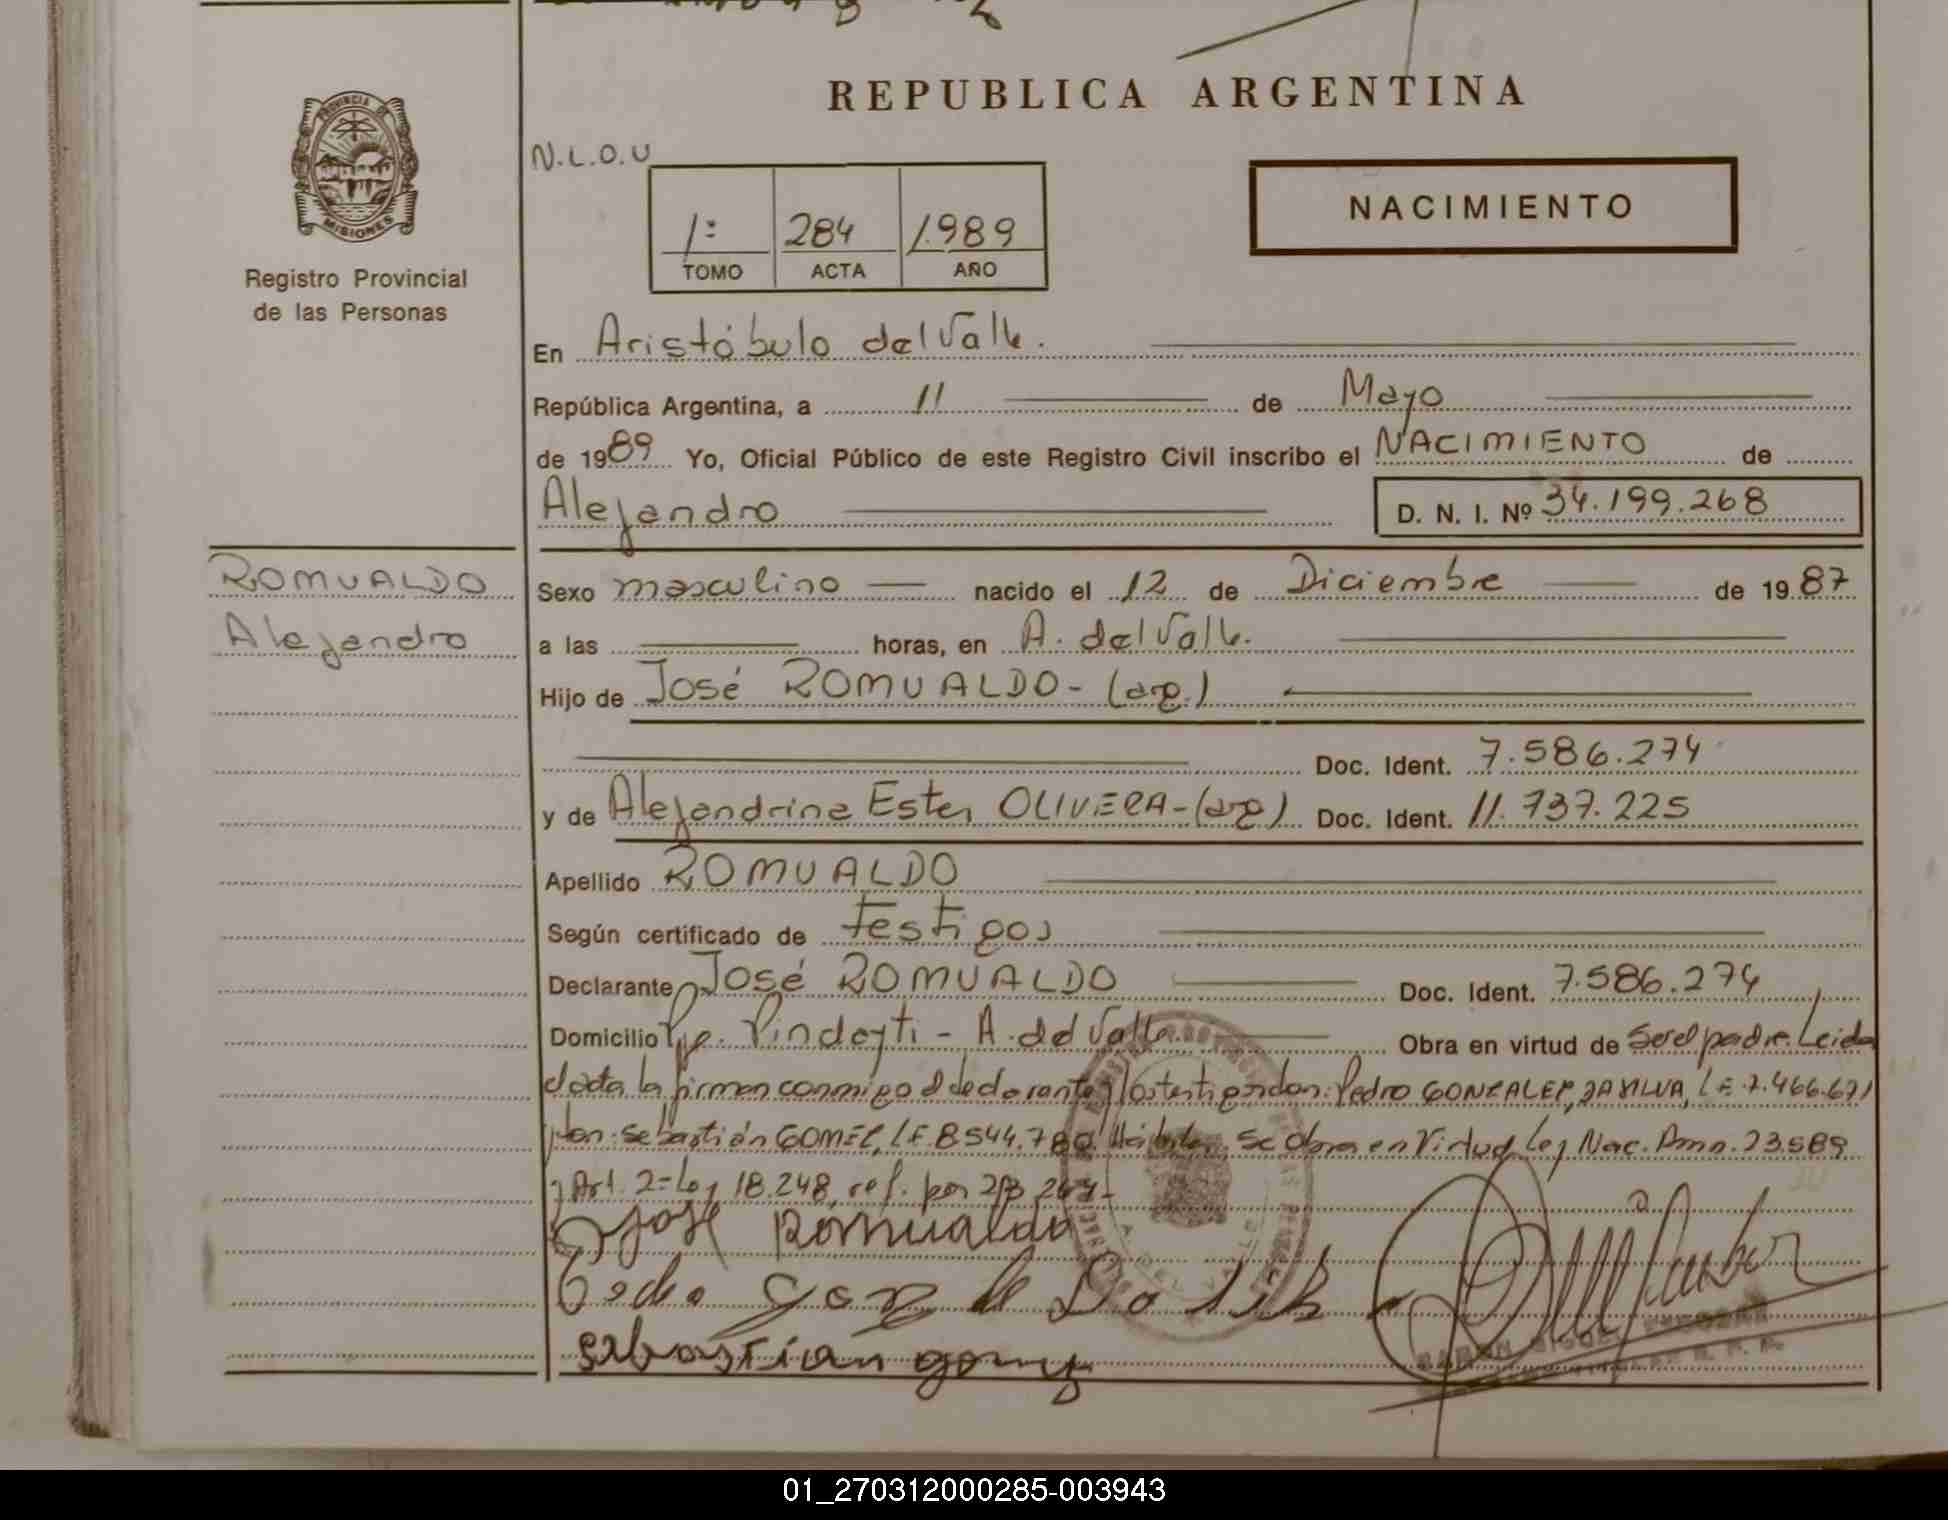 REPUBLICA ARGENTINA
PROVINCIA DE MISIONES
Registro Provincial
de las Personas
N.L.O.U
1º 284 1.989
TOMO ACTA AÑO
NACIMIENTO
En Aristóbulo del Valle.
República Argentina, a 11 de Mayo
de 1989 Yo, Oficial Público de este Registro Civil inscribo el NACIMIENTO de
Alejandro D. N. I. Nº 34.199.268
ROMUALDO
Alejandro
Sexo masculino nacido el 12 de Diciembre de 1987
a las horas, en A. del Valle.
Hijo de José ROMUALDO - (arg.)
Doc. Ident. 7.586.274
y de Alejandrina Ester OLIVERA - (arg) Doc. Ident. 11.737.225
Apellido ROMUALDO
Según certificado de testigos
Declarante José ROMUALDO Doc. Ident. 7.586.274
Domicilio Pje. Pindayti - A. del Valle. Obra en virtud de ser el padre. Leida
el acta la firman conmigo el declarante y los testigos don: Pedro GONZALEZ, DA SILVA, L.E. 7.466.671
y don: Sebastián GOMEZ, L.E. 8.544.780 Hábiles. Se Obra en Virtud Ley Nac. Amn. 23.589
y Art. 2º Ley 18.248, ref. por
José Romualdo
Pedro Gonz Da Silb
sebastian gomez
01_270312000285-003943